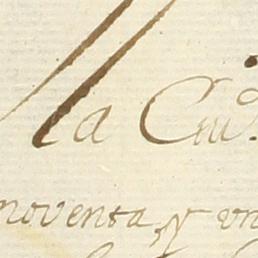 la Ciu.
noventa, y un